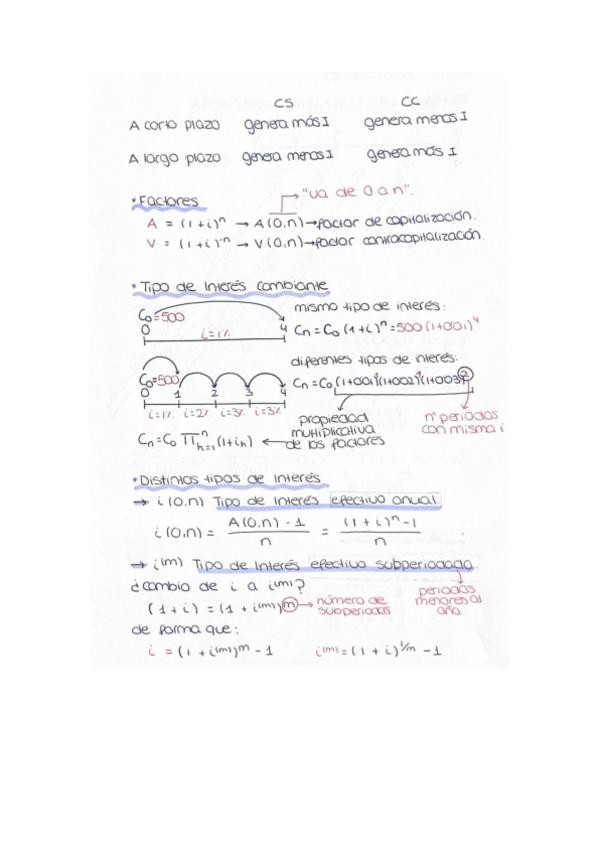 CS CC
A corto plazo genera más I genera menos I
A largo plazo genera menos I genera más I
• Factores "va de 0 a n".
A = (1+i)^n → A(0,n) → factor de capitalización.
V = (1+i)^-n → V(0,n) → factor contracapitalización.
• Tipo de Interés cambiante
C₀=500 mismo tipo de interés:
0 i=1% 4 Cn = C₀ (1+i)^n = 500 (1+0'01)^4
diferentes tipos de interés:
C₀=500 Cn = C₀ (1+0'01)^1 (1+0'02)^1 (1+0'03)^2
0 1 2 3 4
i=1% i=2% i=3% i=3%
propiedad multiplicativa de los factores
nº periodos con misma i
Cn = C₀ ∏ⁿₕ₌₁ (1+iₕ)
• Distintos tipos de interés
→ i(0,n) Tipo de Interés efectivo anual
i(0,n) = A(0,n) - 1 / n = (1+i)^n - 1 / n
→ i^(m) Tipo de Interés efectivo subperiodada
¿cambio de i a i^(m)? periodos menores al año.
(1+i) = (1+i^(m))^m → número de subperiodos
de forma que:
i = (1+i^(m))^m - 1 i^(m) = (1+i)^1/m - 1